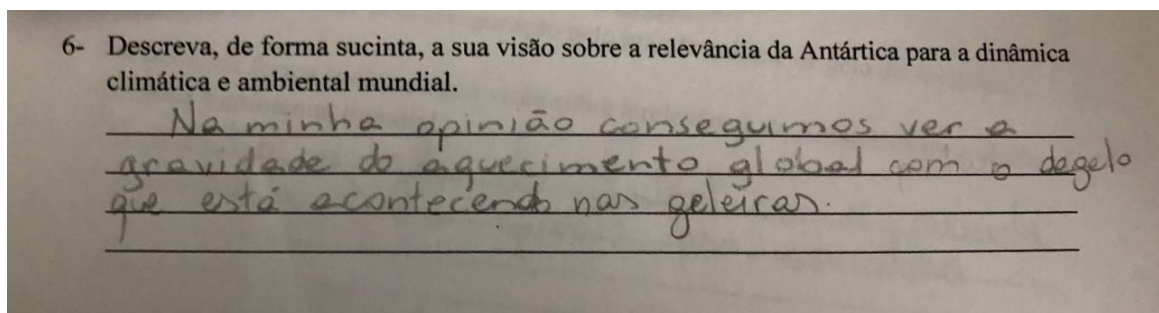 6- Descreva, de forma sucinta, a sua visão sobre a relevância da Antártica para a dinâmica
climática e ambiental mundial.
Na minha opinião conseguimos ver a
gravidade do aquecimento global com o degelo
que está acontecendo nas geleiras.